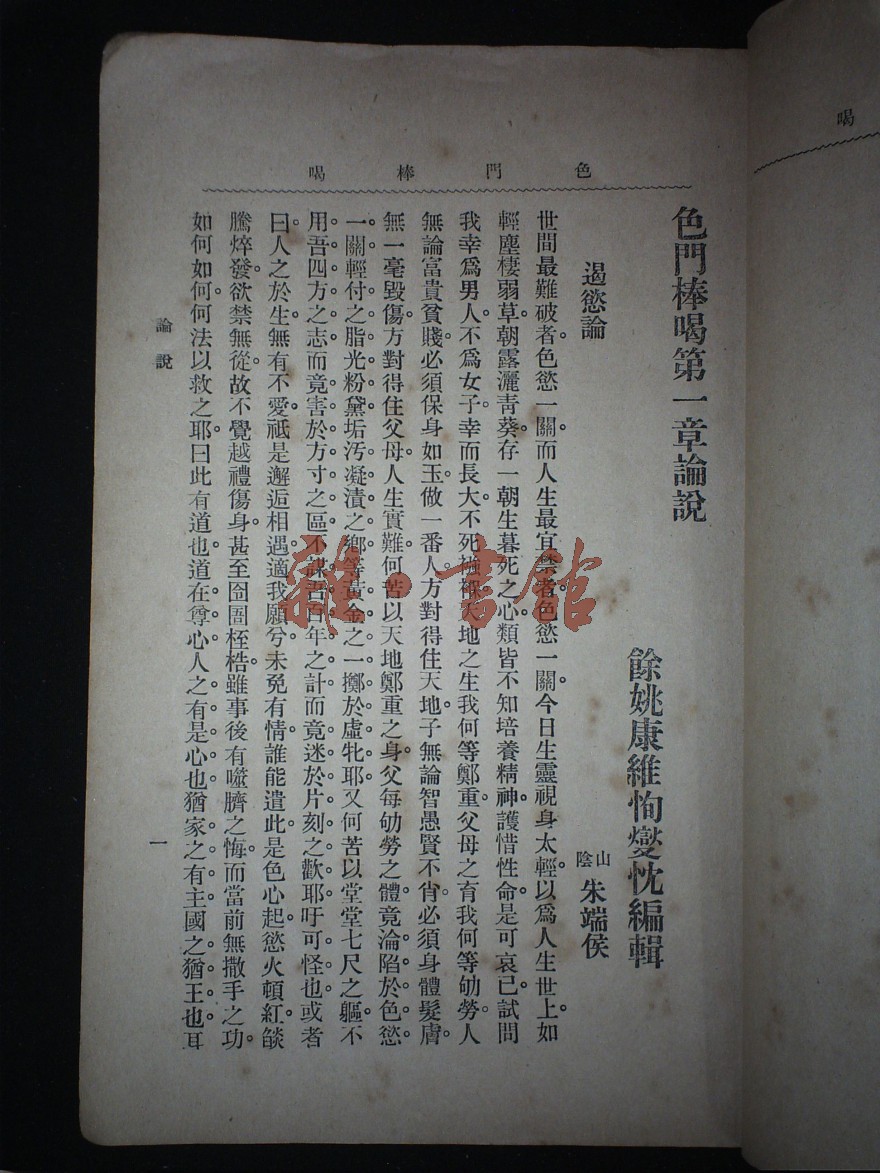 喝
色門棒喝
色門棒喝第一章論說
餘姚康維恂燮忱編輯
遏慾論
山陰朱端侯
世間最難破者色慾一關。而人生最宜禁者色慾一關。今日生靈視身太輕。以爲人生世上。如
輕塵棲弱草。朝露灑靑葵。存一朝生暮死之心。類皆不知培養精神。護惜性命。是可哀已。試問
我幸爲男人。不爲女子。幸而長大。不死襁褓。天地之生我何等鄭重。父母之育我何等劬勞。人
無論富貴貧賤。必須保身如玉。做一番人。方對得住天地。子無論智愚賢不肖。必須身體髮膚。
無一毫毀傷。方對得住父母。人生實難。何苦以天地鄭重之身。父每劬勞之體。竟淪陷於色慾
一關。輕付之脂光粉黛垢汚凝漬之鄉。等黃金之一擲於虛牝耶。又何苦以堂堂七尺之軀。不
用吾四方之志。而竟害於方寸之區。不謀吾百年之計。而竟迷於片刻之歡耶。吁可怪也。或者
曰。人之於生。無有不愛。祗是邂逅相遇。適我願兮。未免有情。誰能遣此。是色心起。慾火頓紅。燄
騰焠發。欲禁無從。故不覺越禮傷身。甚至囹圄桎梏。雖事後有噬臍之悔。而當前無撒手之功。
如何如何。何法以救之耶。曰此有道也。道在尊心。人之有是心也。猶家之有主。國之猶王也。耳
論說
一
雜·書館